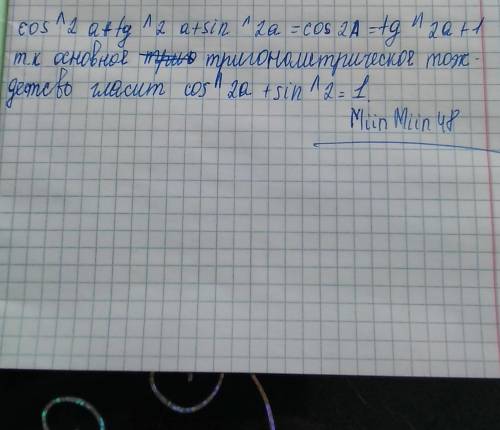 cos^2 a+tg^2 a+sin^2a=cos2A=tg^2a+1
тк основное триго тригонометрическое тож-
дество гласит cos^2a+sin^2=1.
Miin Miin 48